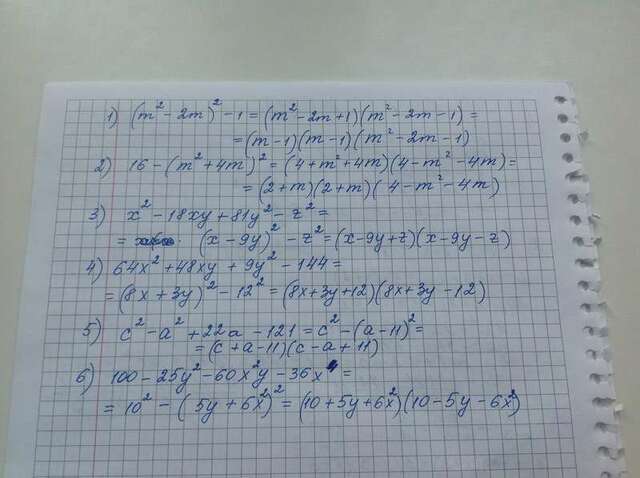 1) (m² - 2m)² - 1 = (m² - 2m + 1)(m² - 2m - 1) =
= (m - 1)(m - 1)(m² - 2m - 1)
2) 16 - (m² + 4m)² = (4 + m² + 4m)(4 - m² - 4m) =
= (2 + m)(2 + m)(4 - m² - 4m)
3) x² - 18xy + 81y² - z² =
= (x - 9y)² - z² = (x - 9y + z)(x - 9y - z)
4) 64x² + 48xy + 9y² - 144 =
= (8x + 3y)² - 12² = (8x + 3y + 12)(8x + 3y - 12)
5) c² - a² + 22a - 121 = c² - (a - 11)² =
= (c + a - 11)(c - a + 11)
6) 100 - 25y² - 60x²y - 36x⁴ =
= 10² - (5y + 6x²)² = (10 + 5y + 6x²)(10 - 5y - 6x²)